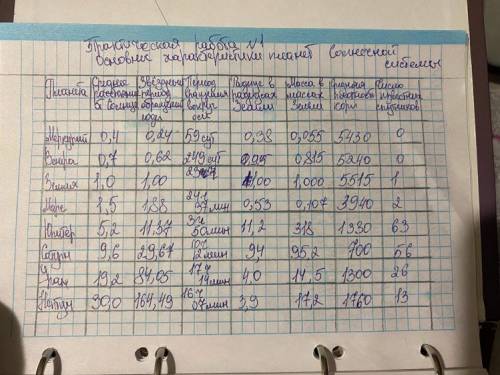 Практическая работа №1
Основные характеристики планет солнечной
системы
Планета Среднее расстояние Солнца Звёздный период обращения года Период вращения вокруг оси Радиус в радиусах Земли Масса в массах Земли Средняя плотность Число известных спутников
Меркурий 0,4 0,24 59 сут 0,38 0,055 5430 0
Венера 0,7 0,62 249 сут 0,95 0,815 5240 0
Земля 1,0 1,00 1,00 1,000 5515 1
Марс 1,5 1,88 24ч 37 мин 0,53 0,107 3940 2
Юпитер 5,2 11,37 50 мин 11,2 318 1330 63
Сатурн 9,6 29,67 10ч 12 мин 9,4 95,2 700 56
Уран 19,2 84,05 17ч 14 мин 4,0 14,5 1300 26
Нептун 30,0 164,49 16ч 07 мин 3,9 17,2 1760 13